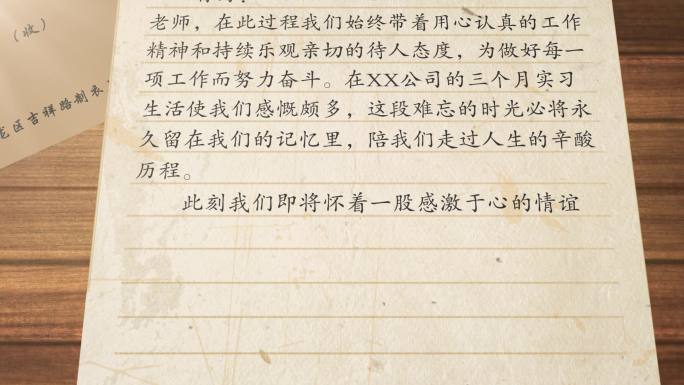 （收）
区吉祥路制衣
老师，在此过程我们始终带着用心认真的工作
精神和持续乐观亲切的待人态度，为做好每一
项工作而努力奋斗。在XX公司的三个月实习
生活使我们感慨颇多，这段难忘的时光必将永
久留在我们的记忆里，陪我们走过人生的辛酸
历程。
此刻我们即将怀着一股感激于心的情谊